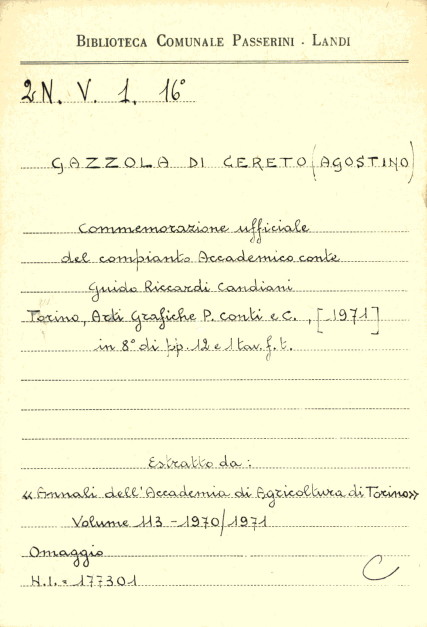 BIBLIOTECA COMUNALE PASSERINI - LANDI
2N. V. 1. 16°
GAZZOLA DI CERETO (AGOSTINO)
Commemorazione ufficiale
del compianto Accademico conte
Guido Riccardi Candiani
Torino, Arti Grafiche P. Conti e C., [1971]
in 8° di pp. 12 e 1 tav. f. t.
Estratto da:
«Annali dell'Accademia di Agricoltura di Torino»
Volume 113 - 1970/1971
Omaggio
N.I. = 177301
C